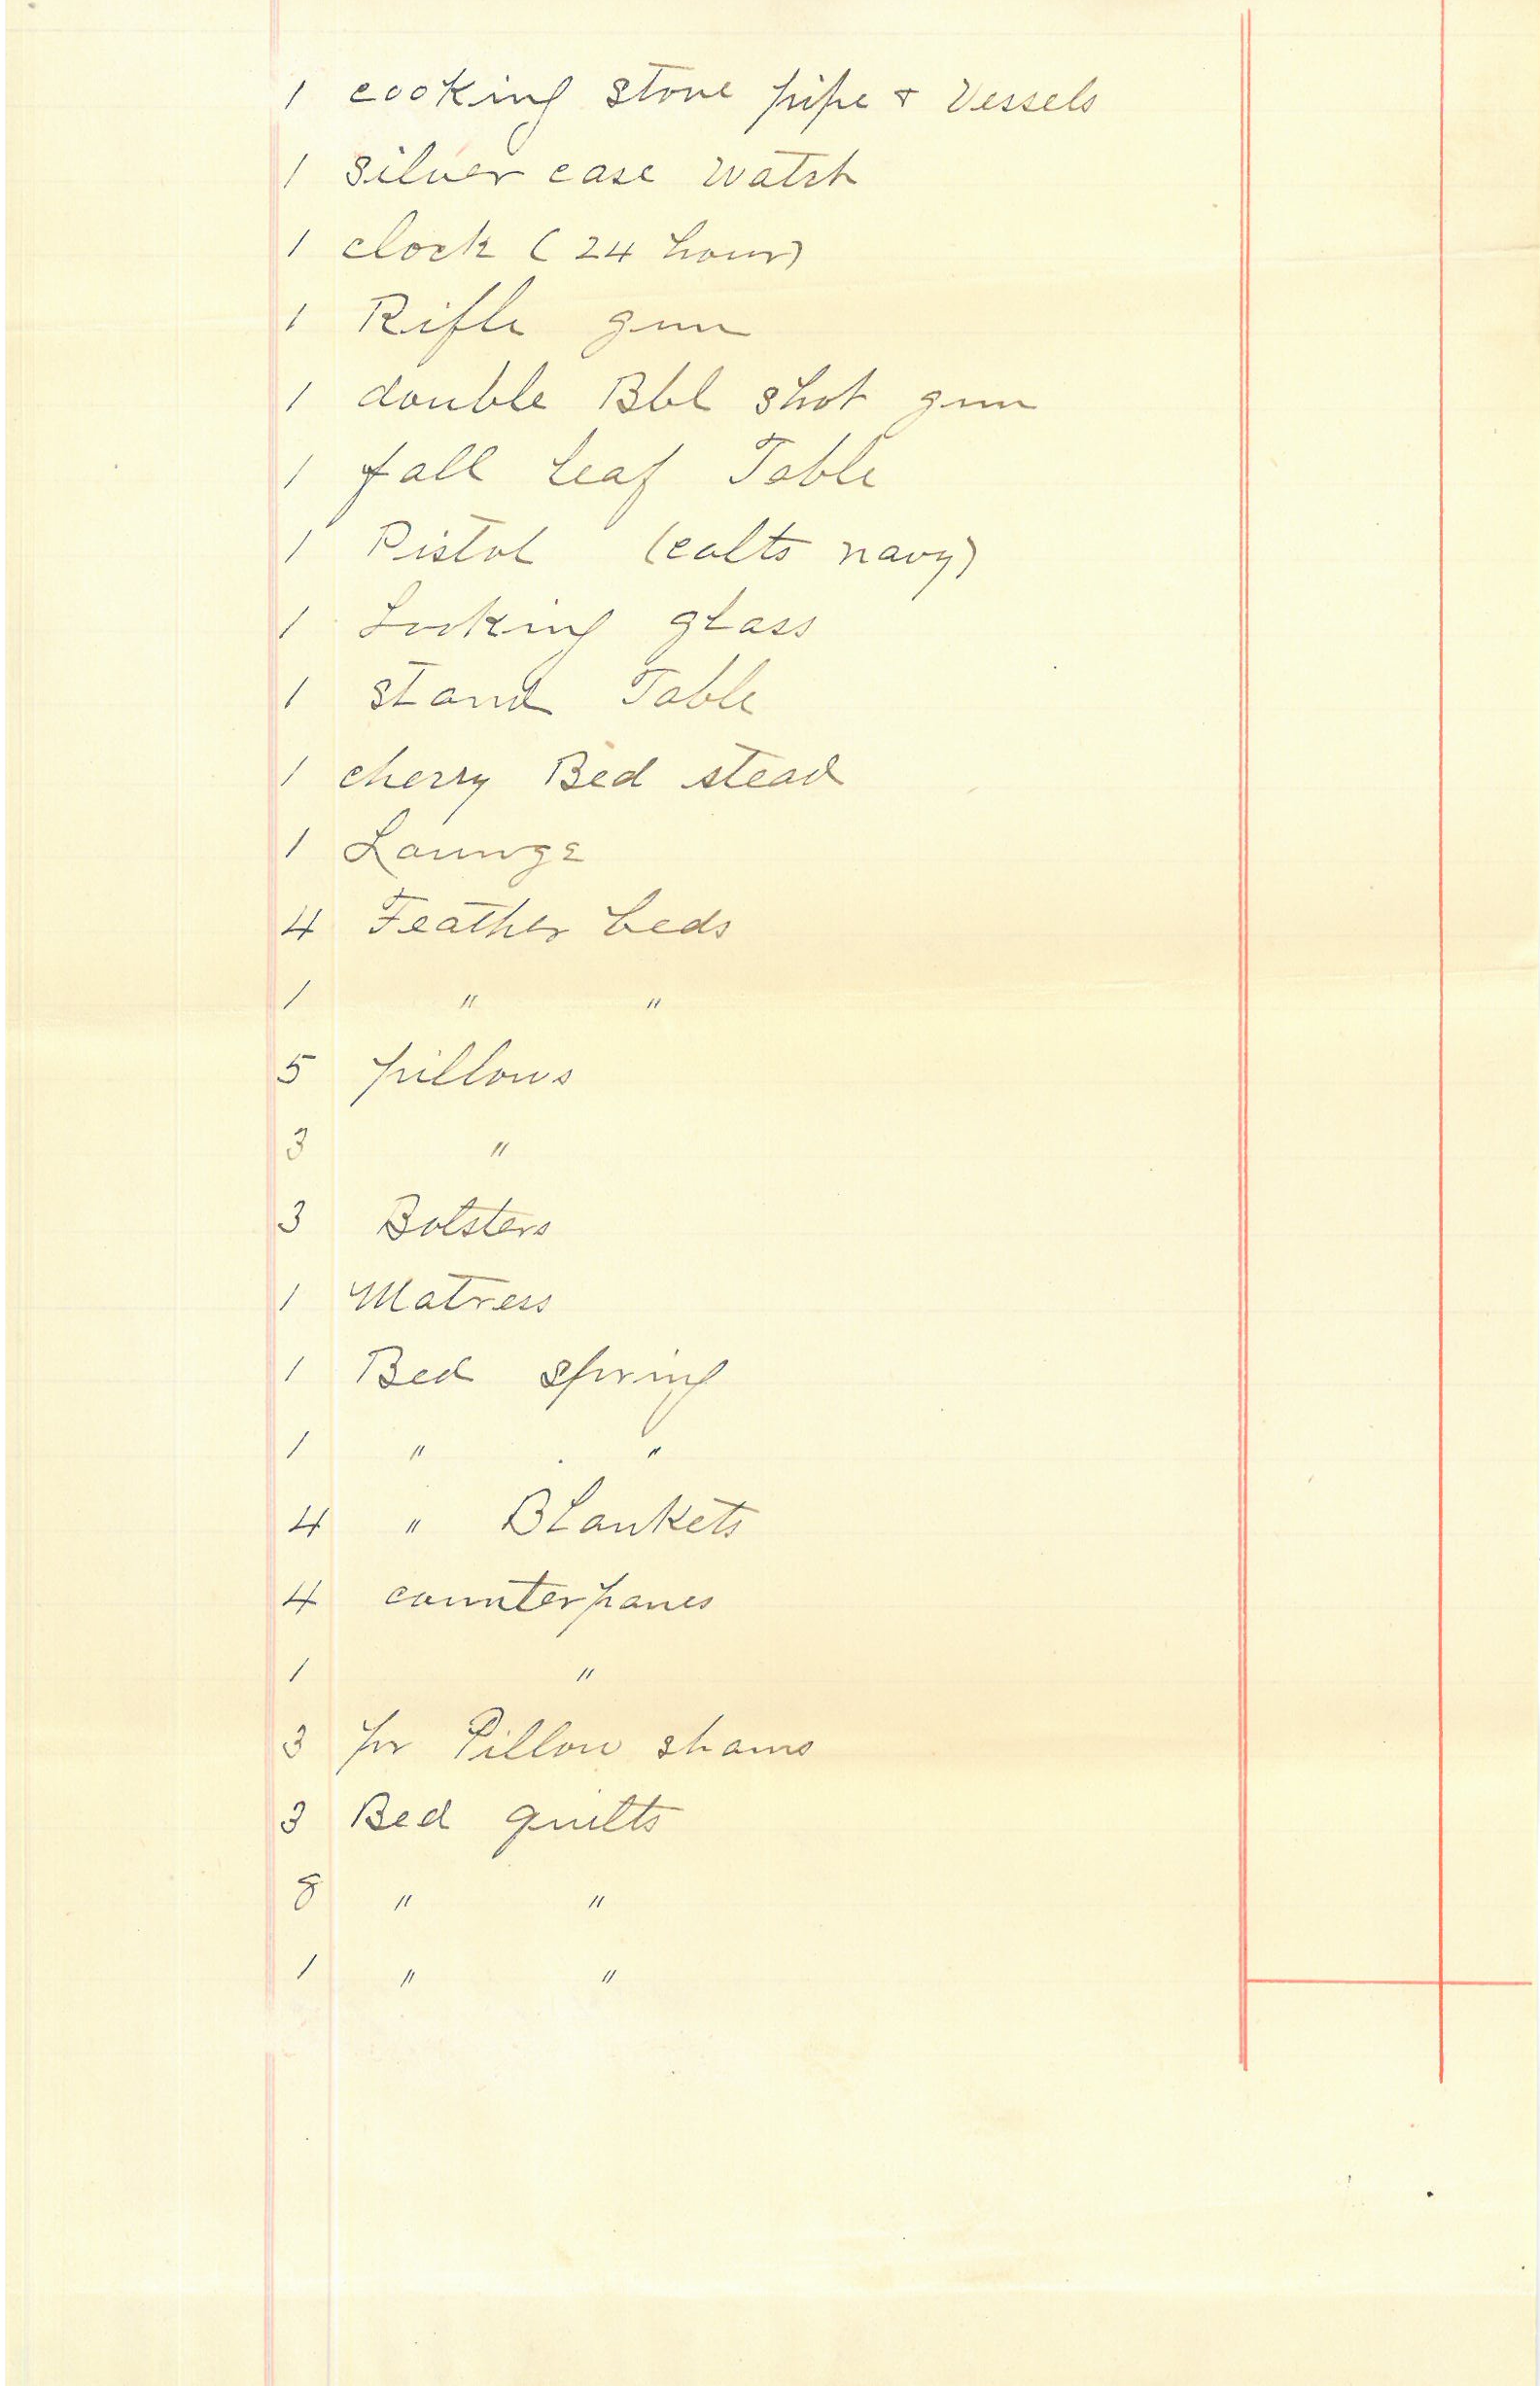 1 cooking stove pipe & Vessels
1 Silver case watch
1 clock (24 hour)
1 Rifle gun
1 double Bbl shot gun
1 fall Leaf Table
1 Pistol (colts navy)
1 Looking glass
1 stand Table
1 cherry Bed stead
1 Lounge
4 Feather beds
1 " "
5 pillows
3 "
3 Bolsters
1 Matress
1 Bed spring
1 " "
4 " Blankets
4 counterpanes
1 "
3 pr Pillow shams
3 Bed quilts
8 " "
1 " "